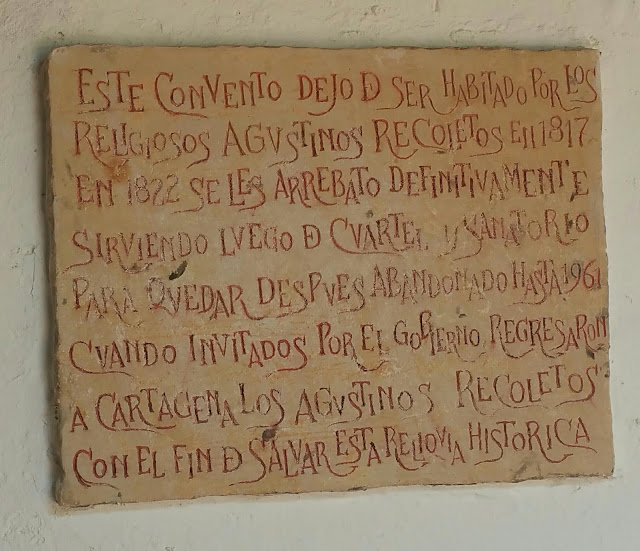 ESTE CONVENTO DEJO D SER HABITADO POR LOS
RELIGIOSOS AGVSTINOS RECOLETOS EN 1817
EN 1822 SE LES ARREBATO DEFINITIVAMENTE
SIRVIENDO LVEGO D CVARTEL Y SANATORIO
PARA QVEDAR DESPVES ABANDONADO HASTA 1961
CVANDO INVITADOS POR EL GOBIERNO, REGRESARON
A CARTAGENA LOS AGVSTINOS RECOLETOS
CON EL FIN D SALVAR ESTA RELIQVIA HISTORICA